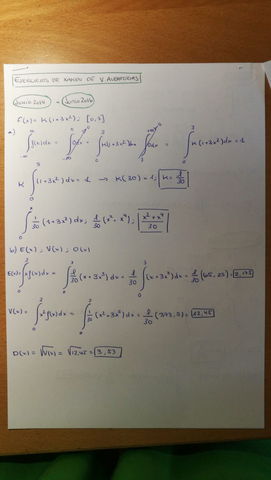 EJERCICIOS DE EXAMEN DE V. ALEATORIAS
JUNIO 2014 = JUNIO 2016
f(x) = K(1+3x²) ; [0,3]
a) ∫f(x)dx = ∫0dx + ∫K(1+3x²)dx + ∫0dx = ∫K(1+3x²)dx = 1
K ∫(1+3x²)dx = 1 → K(30) = 1 ; K = 1/30
∫ 1/30 (1+3x²)dx ; 1/30 (x²+x⁴) ; x²+x⁴/30
b) E(x) ; V(x) ; D(x)
E(x) = ∫x f(x)dx = ∫ 1/30 (x+3x³)dx = 1/30 ∫(x+3x³)dx = 1/30 (65,25) = 2,175
V(x) = ∫x² f(x)dx = ∫ 1/30 (x²+3x⁴)dx = 1/30 = 12,45
D(x) = √V(x) = √12,45 = 3,53